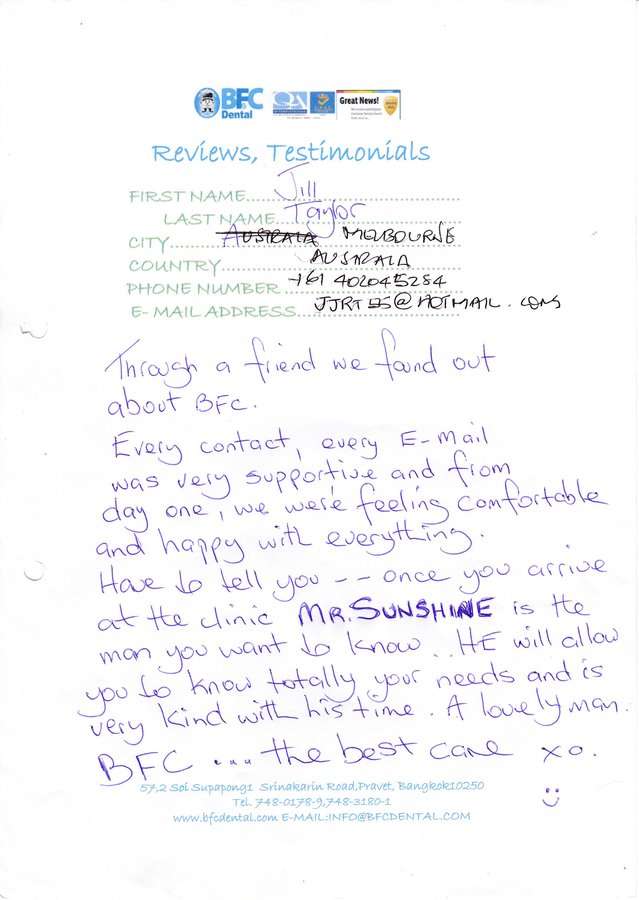 BFC
Dental
Great News!
Reviews, Testimonials
FIRST NAME Jill
LAST NAME Taylor
CITY MELBOURNE
COUNTRY AUSRALA
PHONE NUMBER +61 402045284
E-MAIL ADDRESS JJRT55@HOTMAIL.COM
Through a friend we found out
about BFC.
Every contact, every E-Mail
was very supportive and from
day one, we were feeling comfortable
and happy with everything.
Have to tell you -- once you arrive
at the clinic MR. SUNSHINE is the
man you want to know.. HE will allow
you to know totally your needs and is
very kind with his time. A lovely man.
BFC ... the best care xo.
57,2 Soi Supapong1 Srinakarin Road,Pravet, Bangkok10250
Tel. 748-0178-9,748-3180-1
www.bfcdental.com E-MAIL:INFO@BFCDENTAL.COM